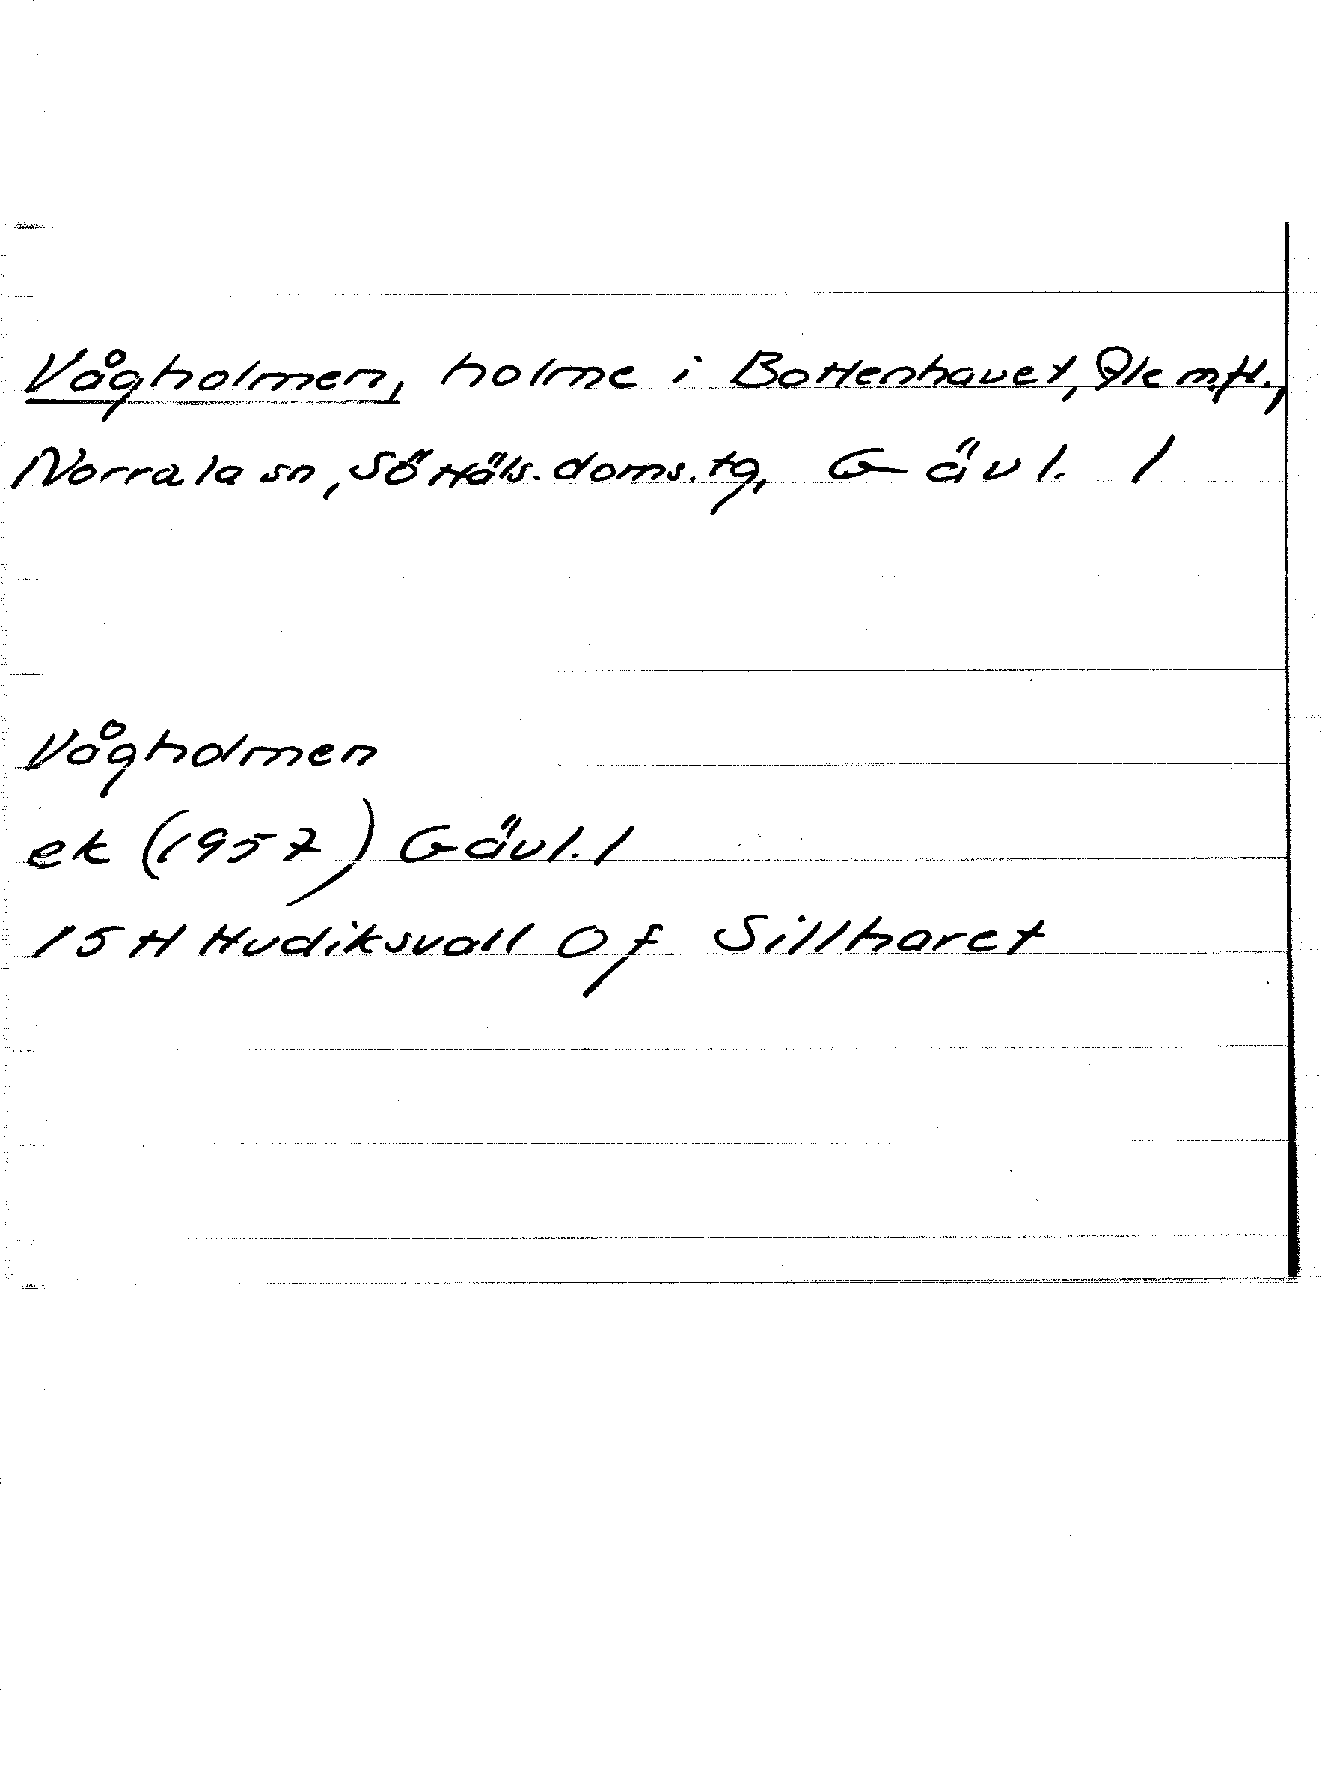 Vågholmen, holme i Bottenhavet, Ale m.fl.,
Norrala sn, SöHäls. doms. tg, Gävl. l
Vågholmen
ek (1957) Gävl. l
15 H Hudiksvall 0 f Sillharet